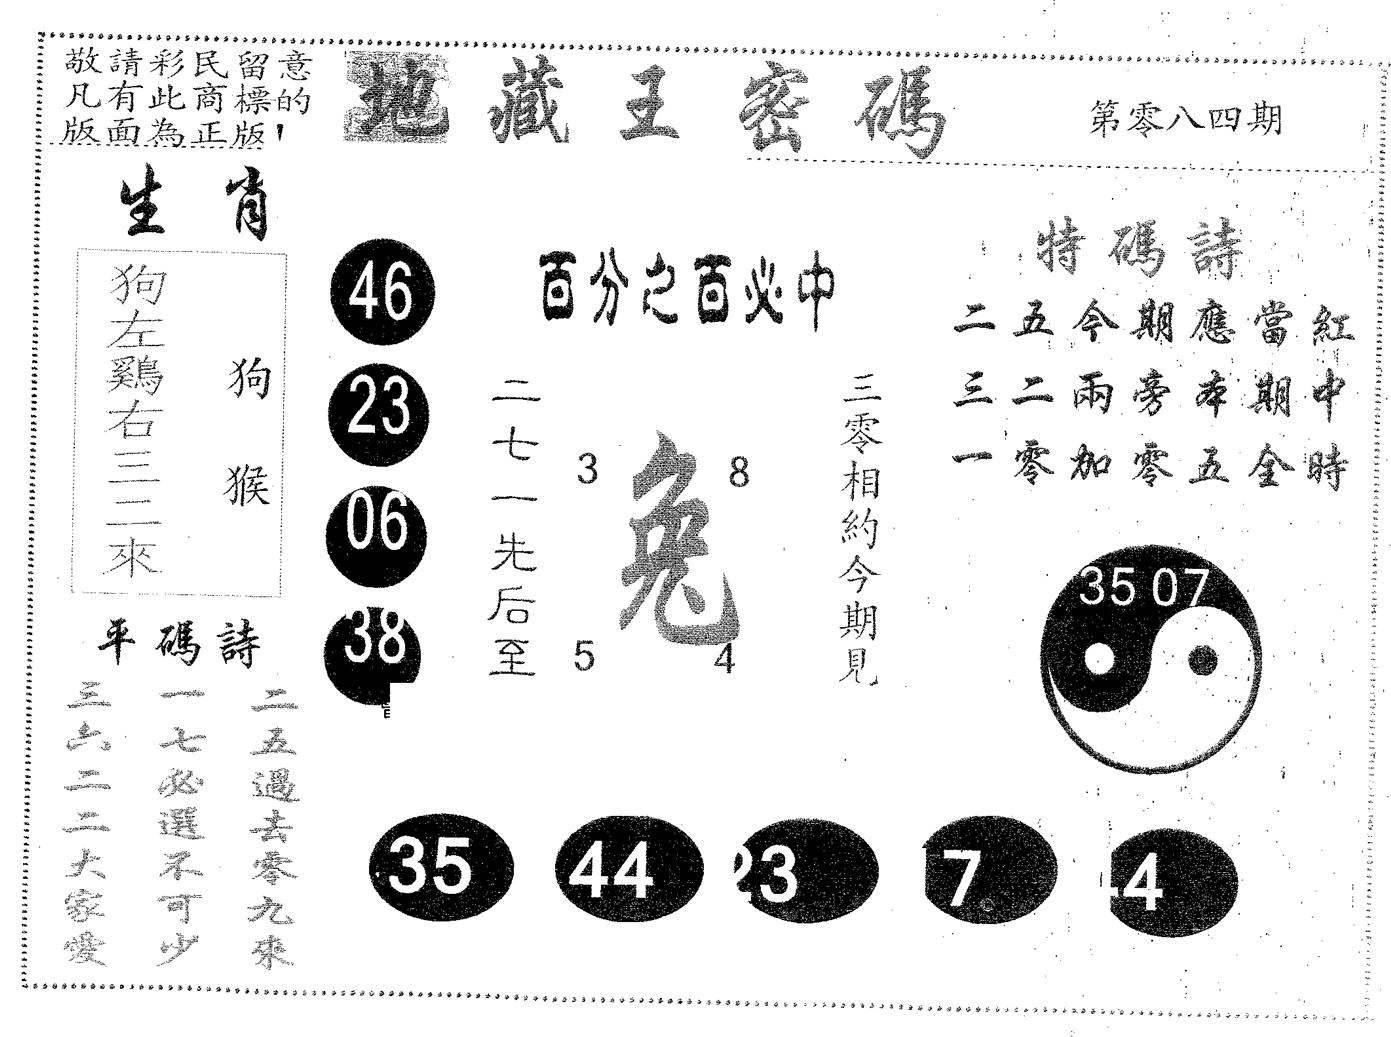 敬請彩民留意
凡有此商標的
版面為正版！
地藏王密碼
第零八四期
生肖
狗左鷄右三二來
狗猴
平碼詩
二五過去零九來
一七必選不可少
三六二二大家愛
46
23
06
38
百分之百必中
三零相約今期見
二七一先后至
3
8
兔
5
4
特碼詩
二五今期應當紅
三二兩旁本期中
一零加零五全時
35 07
35
44
23
7
4